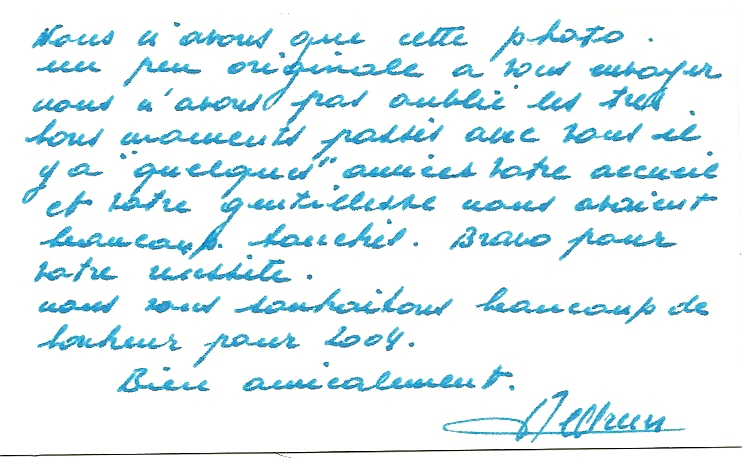 Nous n'avons que cette photo.
un peu originale a vous envoyer
nous n'avons pas oublié les très
bons moments passés avec vous il
y a "quelques" années votre accueil
et votre gentillesse nous avaient
beaucoup touchés. Bravo pour
votre réussite.
nous vous souhaitons beaucoup de
bonheur pour 2004.
Bien amicalement.